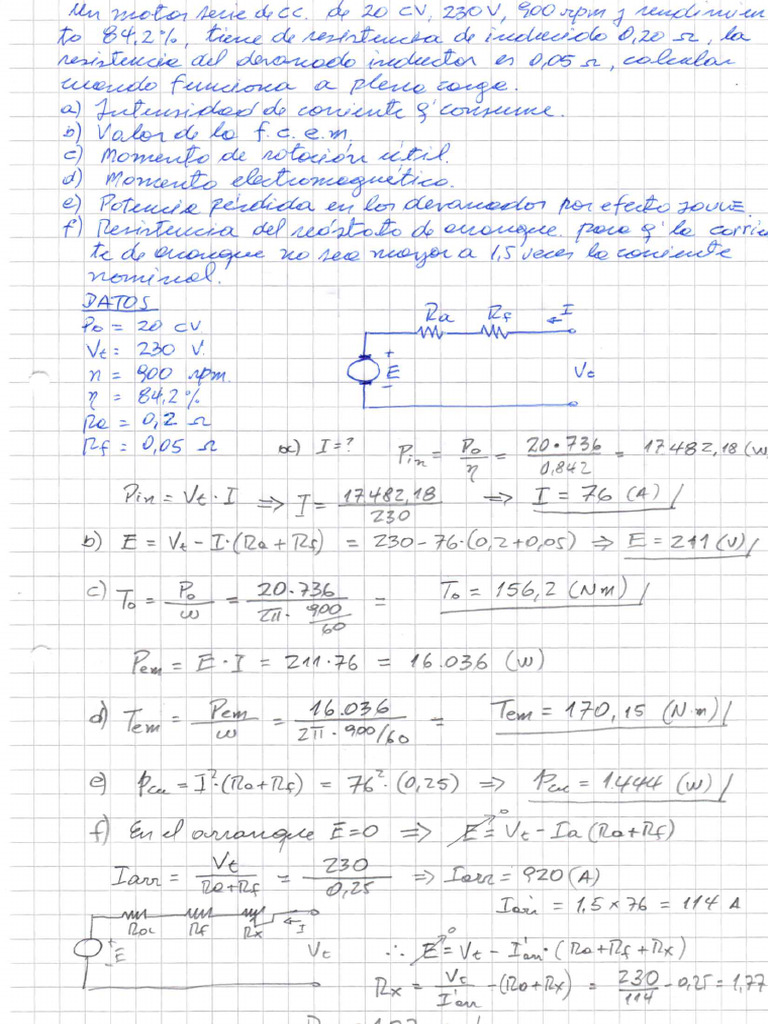 Un motor serie de CC. de 20 CV, 230V, 900 rpm y rendimien
to 84,2%, tiene de resistencia de inducido 0,20 Ω, la
resistencia del devanado inductor es 0,05 Ω, calcular
cuando funciona a plena carga.
a) Intensidad de corriente q' consume.
b) Valor de la f.c.e.m.
c) Momento de rotación útil.
d) Momento electromagnético.
e) Potencia perdida en los devanados por efecto JOULE.
f) Resistencia del reóstato de arranque para q' la corrie
te de arranque no sea mayor a 1,5 veces la corriente
nominal.
DATOS
Po = 20 CV
Vt = 230 V.
n = 900 rpm.
η = 84,2%
Ra = 0,2 Ω
Rf = 0,05 Ω
Ra Rf I
+ E - Vc
a) I=? Pin = Po/η = 20·736/0,842 = 17482,18 (W)
Pin = Vt · I ⇒ I = 17482,18/230 ⇒ I = 76 (A) /
b) E = Vt - I·(Ra+Rf) = 230-76·(0,2+0,05) ⇒ E = 211 (V) /
c) To = Po/ω = 20·736/(2π·900/60) = To = 156,2 (Nm) /
Pem = E · I = 211·76 = 16.036 (W)
d) Tem = Pem/ω = 16.036/(2π·900/60) = Tem = 170,15 (N·m) /
e) Pcu = I²·(Ra+Rf) = 76²·(0,25) ⇒ Pcu = 1444 (W) /
f) En el arranque E=0 ⇒ E⁰ = Vt - Ia (Ra+Rf)
Iarr = Vt/(Ra+Rf) = 230/0,25 ⇒ Iarr = 920 (A)
Iarr = 1,5 × 76 = 114 A
Ra Rf Rx I
+ E - Vt
∴ E⁰ = Vt - I'arr·(Ra+Rf+Rx)
Rx = Vt/I'arr - (Ra+Rx) = 230/114 - 0,25 = 1,77